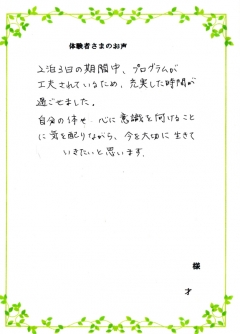 体験者さまのお声
2泊3日の期間中、プログラムが
工夫されているため、充実した時間が
過ごせました。
自分の体や心に意識を向けること
に気を配りながら、今を大切に生きて
いきたいと思います。
様
才